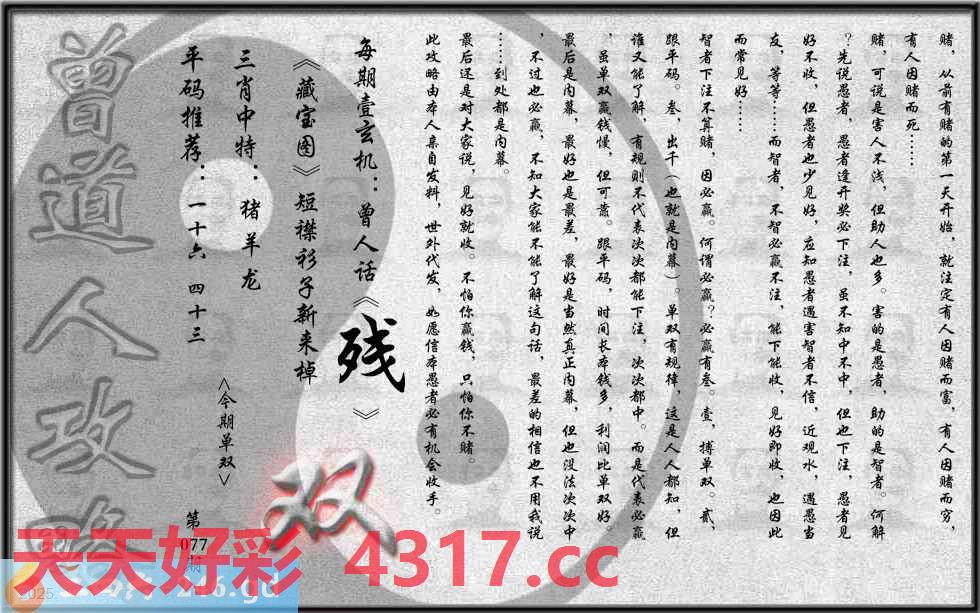 赌，从前有赌的第一天开始，就注定有人因赌而富，有人因赌而穷，
有人因赌而死……
赌，可说是害人不浅，但助人也多。害的是愚者，助的是智者。何解
？先说愚者，愚者逢开奖必下注，虽不知中不中，但也下注，愚者见
好不收，但愚者也少见好，应知愚者遇害智者不信，近观水，遇愚当
友，等等……而智者，不智必赢不注，能下能收，见好即收，也因此
而常见好……
智者下注不算赌，因必赢。何谓必赢？必赢有叁。壹，搏单双。贰，
跟平码。叁，出千（也就是内幕）。单双有规律，这是人人都知，但
谁又能了解，有规则不代表次次都能下注，次次都中。而是代表必赢
，虽单双赢钱慢，但可靠。跟平码，时间长本钱多，利润比单双好。
最后是内幕，最好也是最差，最好是当然真正内幕，但也没法次次中
，不过也必赢，不知大家能不能了解这句话，最差的相信也不用我说
……到处都是内幕。
最后还是对大家说，见好就收。不怕你赢钱，只怕你不赌。
此攻略由本人亲自发料，世外代发，如愿信本愚者必有机会收手。
每期壹玄机：曾人话《残》
《藏宝图》短襟衫子新来棹
三肖中特：猪羊龙
平码推荐：一十六 四十三
<今期单双>
双
第
077
期
曾道人攻略
天天好彩 4317.cc
2025
246.gd